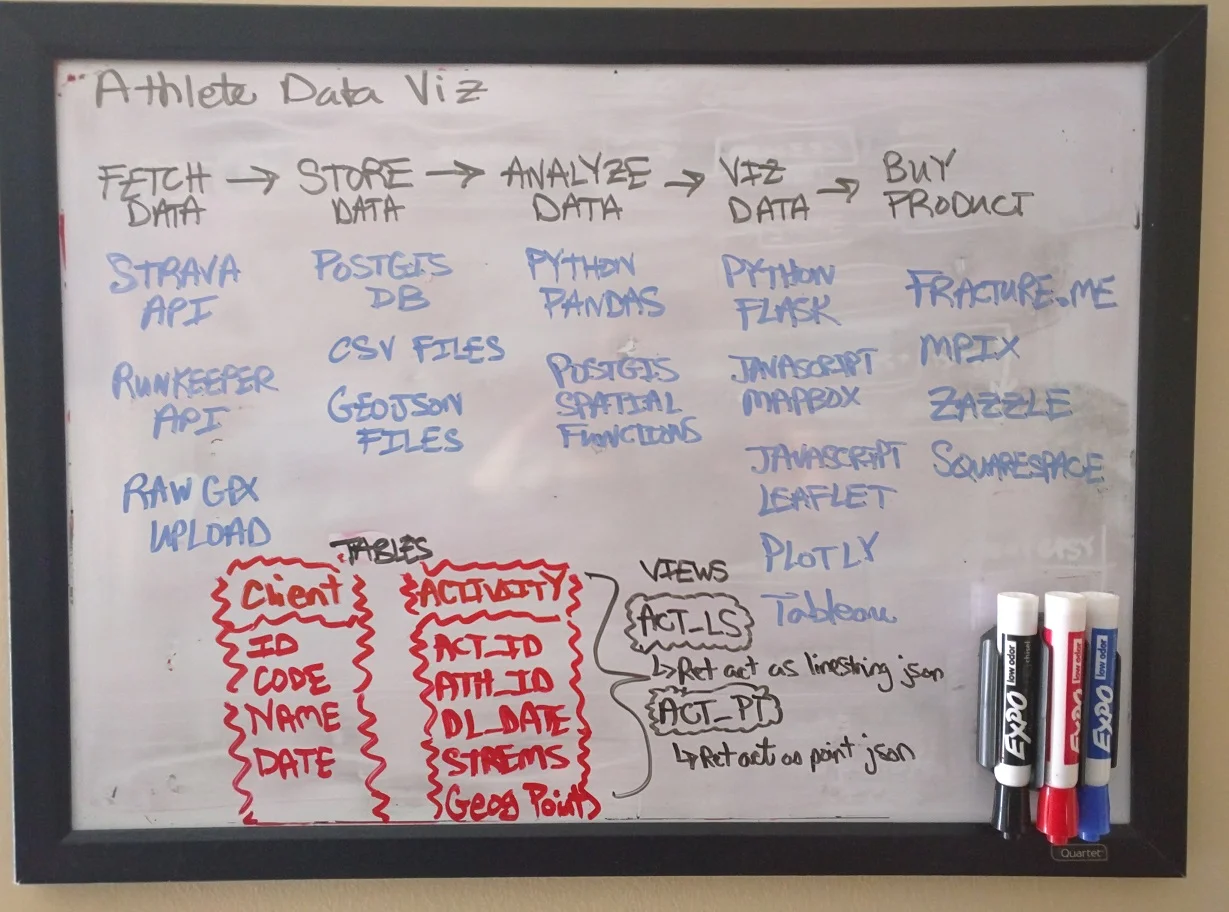 Athlete Data Viz
FETCH DATA → STORE DATA → ANALYZE DATA → VIZ DATA → BUY PRODUCT
STRAVA
API
RUNKEEPER
API
RAW GPX
UPLOAD
POSTGIS
DB
CSV FILES
GEOJSON
FILES
PYTHON
PANDAS
POSTGIS
SPATIAL
FUNCTIONS
PYTHON
FLASK
JAVASCRIPT
MAPBOX
JAVASCRIPT
LEAFLET
PLOTLY
Tableau
FRACTURE.ME
MPIX
ZAZZLE
SQUARESPACE
TABLES
Client
ID
CODE
NAME
DATE
ACTIVITY
ACT_ID
ATH_ID
DL_DATE
STREMS
Geog Points
VIEWS
ACT_LS
↳ Ret act as linestring json
ACT_PT
↳ Ret act as point json
EXPO low odor
EXPO low odor
EXPO low odor
Quartet